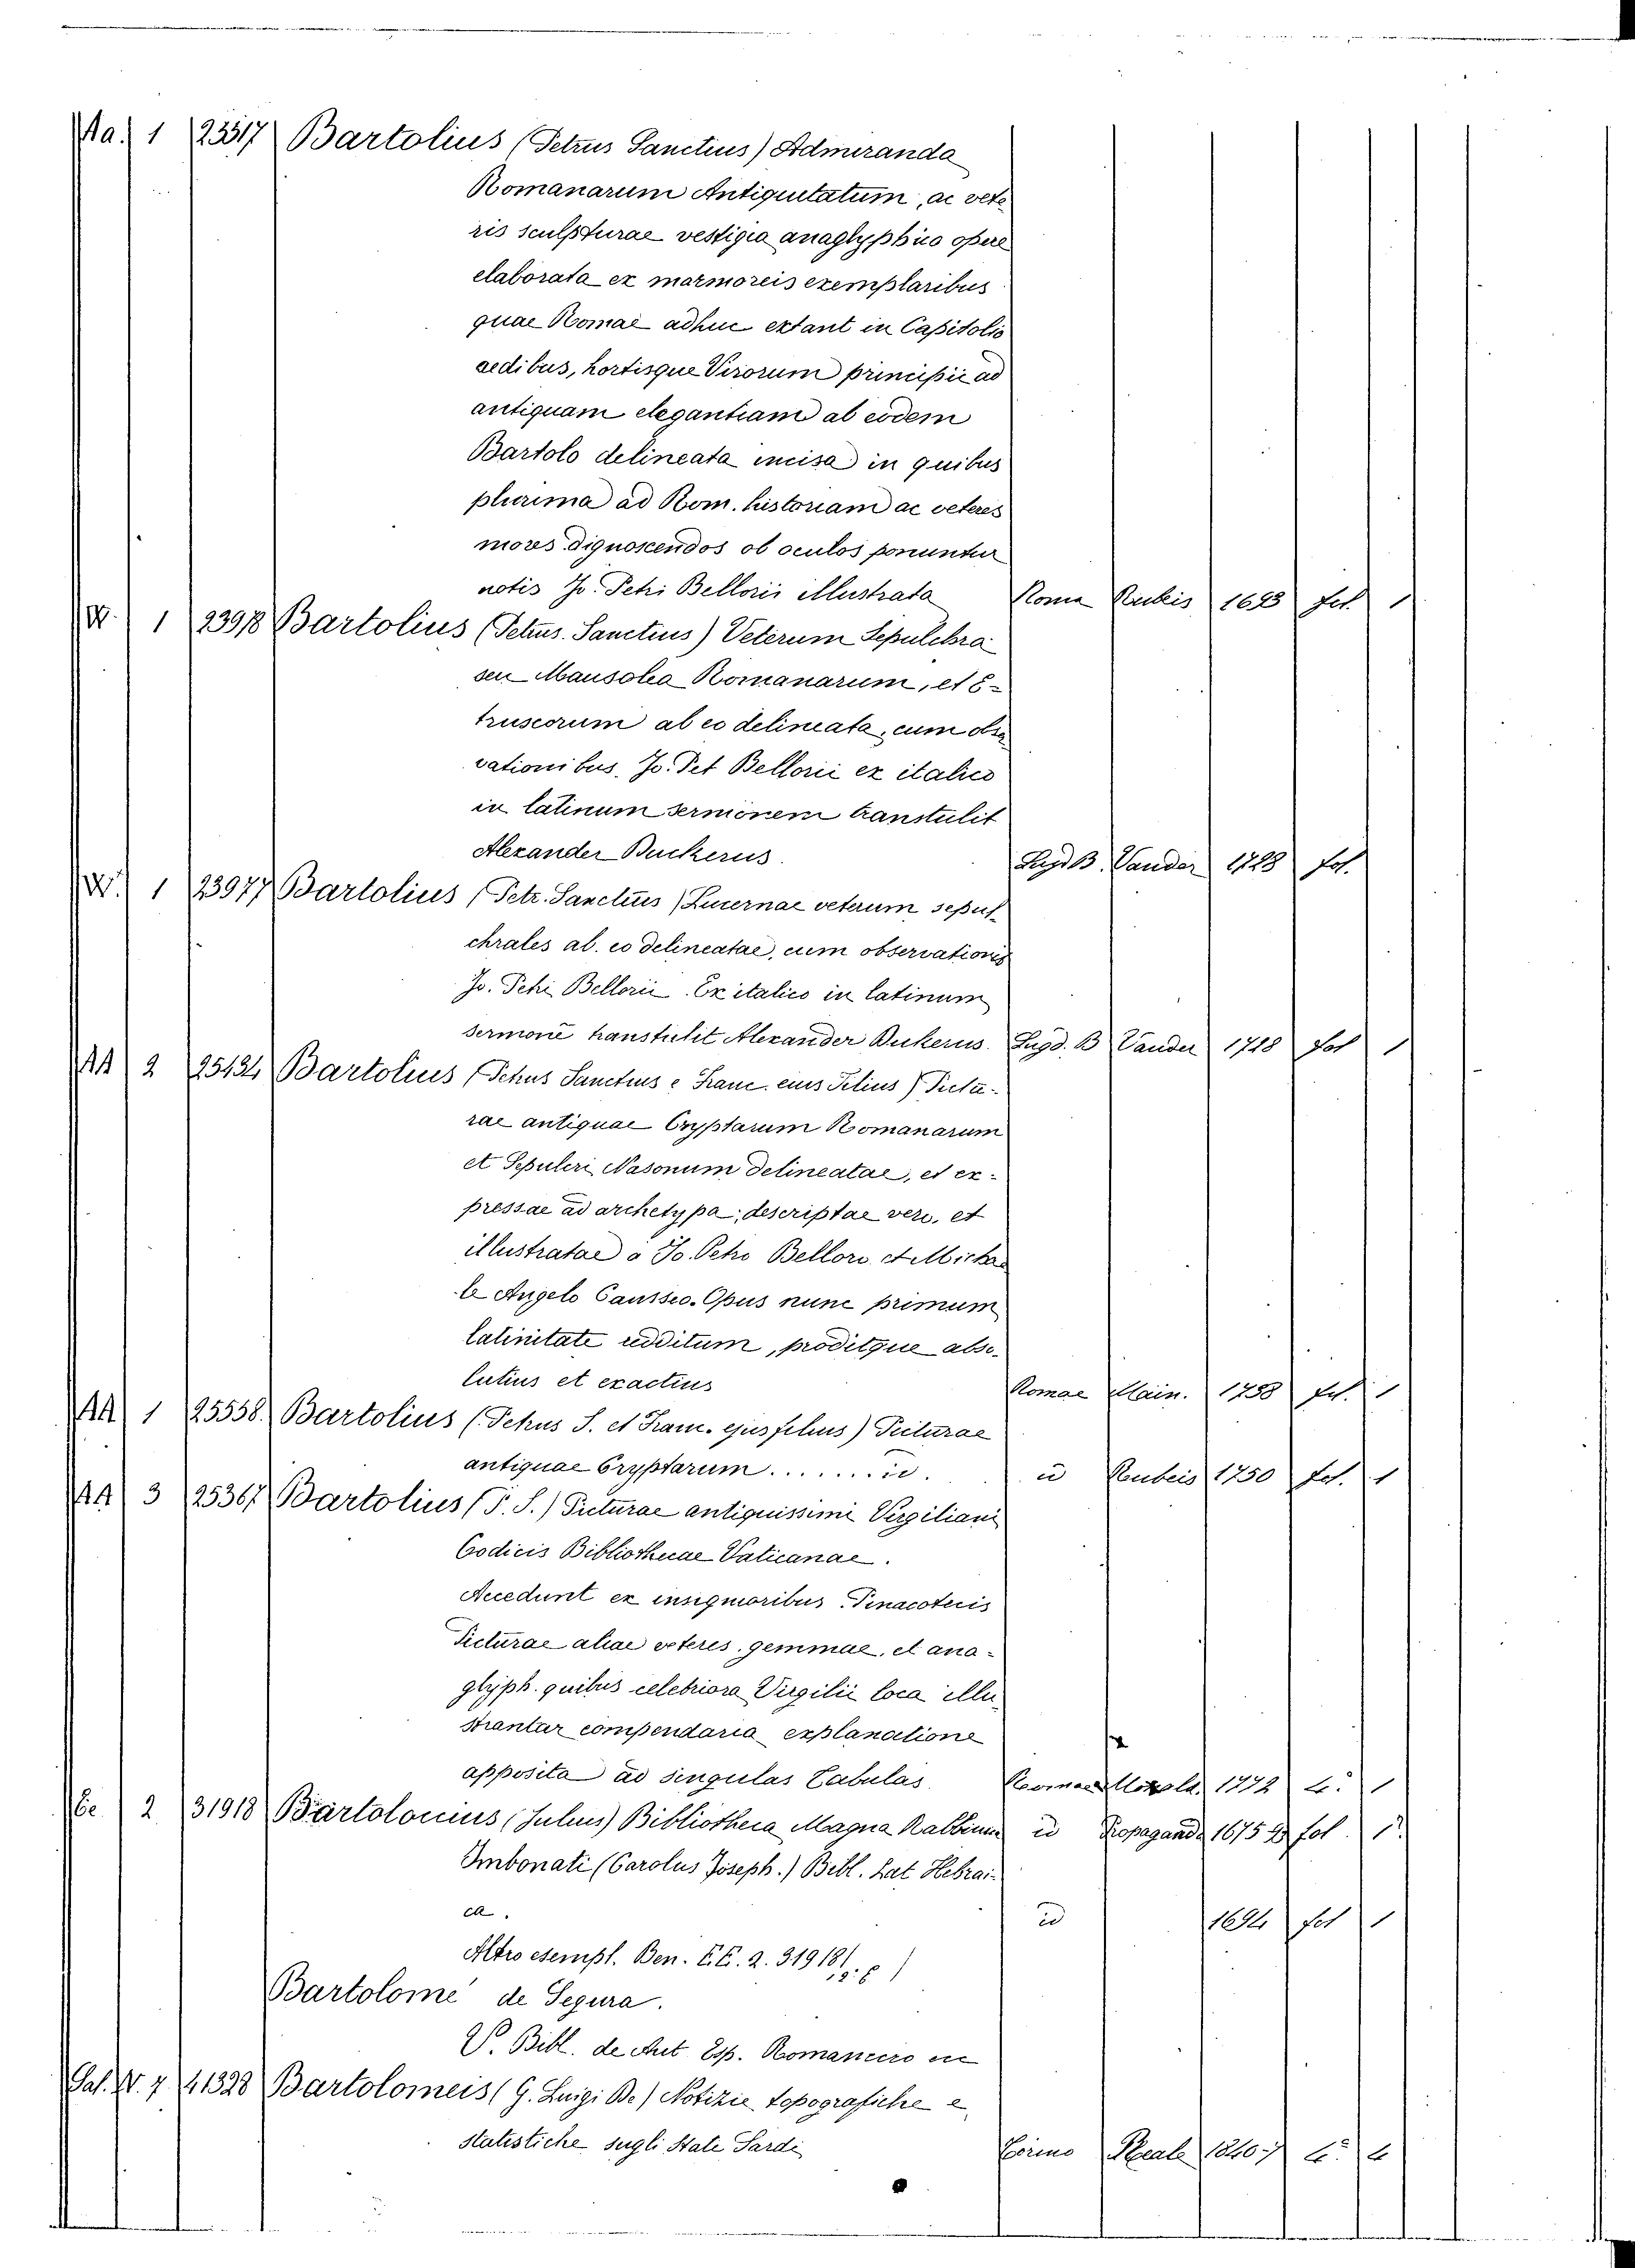 Aa. 1 23317 Bartolius (Petrus Sanctius) Admiranda
Romanarum Antiquitatum, ac vete
ris sculpturae vestigia anaglyphico opere
elaborata ex marmoreis exemplaribus
quae Romae adhuc extant in Capitolio
aedibus, hortisque Virorum principii ad
antiquam elegantiam ab eodem
Bartolo delineata incisa in quibus
plurima ad Rom. historiam ac veteres
mores dignoscendos ob oculos ponuntur
notis Jo. Petri Bellorii illustrata Roma Rubeis 1693 fol. 1
1 23978 Bartolius (Petrus Sanctius) Veterum Sepulchra
seu Mausolea Romanarum, et E-
truscorum ab eo delineata, cum obser
vationibus. Jo. Pet Bellorii ex italico
in latinum sermonem transtulit
Alexander Duckerus. Lugd B. Vander 1728 fol.
1 23977 Bartolius (Petr. Sanctius) Lucernae veterum sepul-
chrales ab. eo delineatae, cum observationis
Jo. Petri Bellorii. Ex italico in latinum
sermone transtulit Alexander Dukerus. Lugd. B Vander 1728 fol 1
AA 2 25424 Bartolius (Petrus Sanctius e Franc. eius Filius) Pictu-
rae antiquae Cryptarum Romanarum
et Sepulcri Nasonum delineatae, et ex-
pressae ad archetypa; descriptae vero, et
illustratae a Jo. Petro Bellori et Michae
le Angelo Causseo. Opus nunc primum
latinitate redditum, proditque abso-
lutius et exactius Romae Main. 1758 fol. 1
AA 1 25558 Bartolius (Petrus S. et Franc. ejus filius) Picturae
antiquae Cryptarum....... id. id Rubeis 1750 fol. 1
AA 3 25367 Bartolius (P. S.) Picturae antiquissimi Virgiliani
Codicis Bibliothecae Vaticanae.
Accedunt ex insignioribus Pinacotecis
Picturae aliae veteres gemmae, et ana-
glyph. quibus celebriora Virgilii loca illu
strantur compendaria explanatione
apposita ad singulas tabulas. Romae 4° 1
Ee 2 31918 Bartoloccius (Julius) Bibliotheca Magna Rabbinica id Propaganda 1675 fol. 1
Imbonati (Carolus Joseph.) Bibl. Lat Hebrai-
ca. id 1694 fol 1
Altro esempl. Ben. E.E. 2. 31918
Bartolomé de Segura.
V. Bibl. de Aut Esp. Romancero
Gal. 7 41328 Bartolomeis (G. Luigi De) Notizie topografiche e
statistiche sugli Stati Sardi Torino Reale 1840-7 4° 4